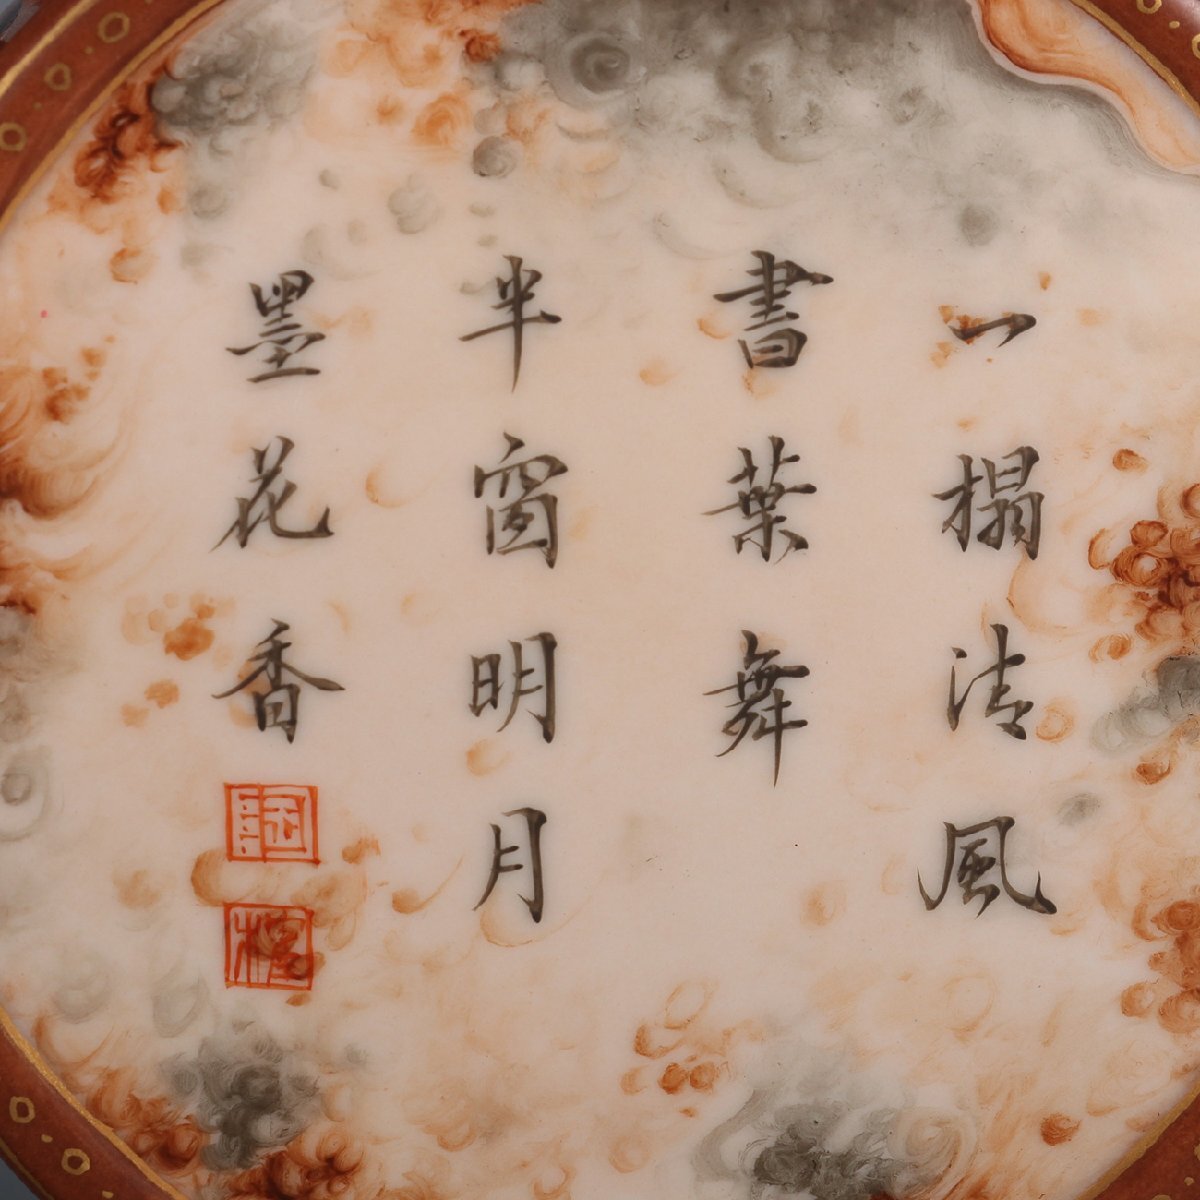 一榻清風
書葉舞
半窗明月
墨花香